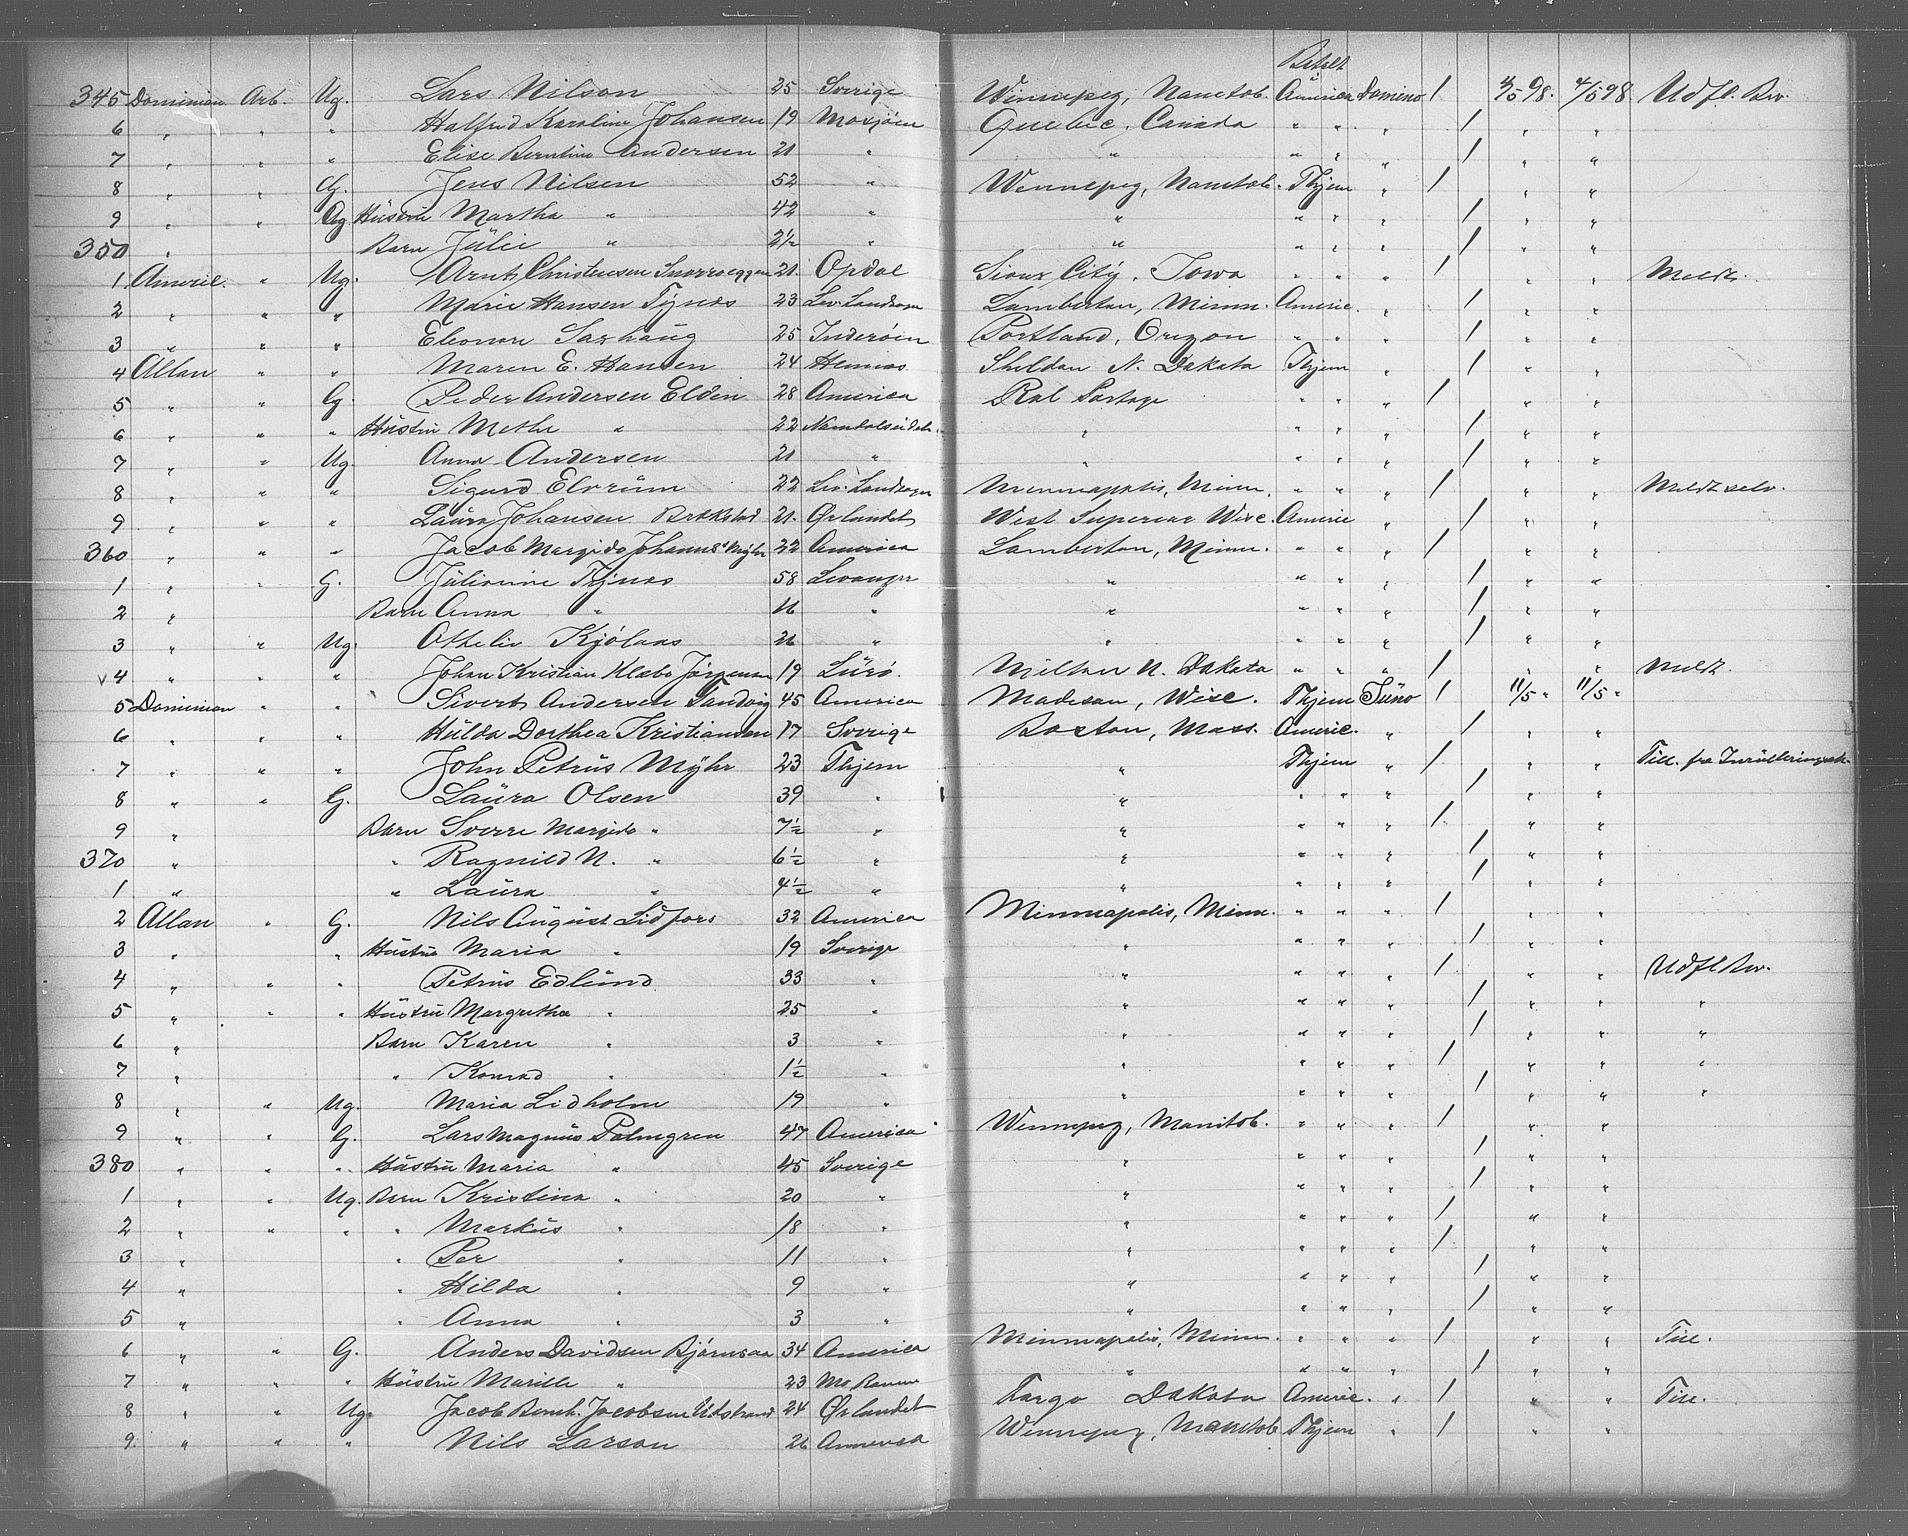 Betalt
345 Dominion Arb. Ug. Lars Nilson 25 Sverige Winnepeg, Manitob. America Domino / 4/5 98. 4/5 98 Udfl. Bev.
6 " " " Halfrid Karoline Johansen 19 Mosjøen Quebec, Canada " " " / " "
7 " " " Elise Berntine Andersen 21 " " " " " / " "
8 " " G. Jens Nilsen 52 " Winnepeg, Manitob. Thjem " / " "
9 " " Ug Hustru Martha " 42 " " " " " / " "
350 " Barn Julie " 2½ " " " " " / " "
1 Americ. " Ug. Arnt Christensen Snorroeggen 21. Opdal Sioux City, Iowa " " " / " " Meldt.
2 " " " Marie Hansen Tynes 23 Lev. Landsogn Lamberton, Minn. Americ. " / " "
3 " " " Eleonore Saxhaug 25 Inderøen Portland, Oregon " " " / " "
4 Allan " " Maren E. Hansen 24 Hemnes Sheldon N. Dakota Thjem " / " "
5 " " G. Peder Andersen Elden 28 America Rat Portage " " " / " "
6 " " " Hustru Methe " 22 Namdalseidet " " " " / " "
7 " " Ug. Anna Andersen 21 " " " " " / " "
8 " " " Sigurd Elvrum 22 Lev. Landsogn Minneapolis, Minn. " " " / " " Meldt selv.
9 " " " Laura Johansen Brækstad 21. Ørlandet West Superior Wisc. Americ " / " "
360 " " " Jacob Margido Johannes. Myhr 22 America Lamberton, Minn. " " " / " "
1 " " G. Julianne Tynes 58 Levanger " " " " / " "
2 " Barn Anna " 16 " " " " " / " "
3 " " Ug. Othelie Kjölaas 26 " " " " " / " "
4 " " " Johan Kristian Klæbo Jörgensen 19 Lurö. Milton N. Dakota " " " / " " Meldt.
5 Dominion " " Sivert Andersen Sandvig 45 America Madison, Wisc. Thjem Juno / 11/5 " 11/5 "
6 " " " Hulda Dorthea Kristiansen 17 Sverige Boston, Mass. Americ. " / " "
7 " " " John Petrus Myhr 23 Thjem " Thjem " / " " Till. fra Inrulleringschef.
8 " " G. Laura Olsen 39 " " " " " / " "
9 " Barn Sverre Margido " 7½ " " " " " / " "
370 " " Ragnild N. " 6½ " " " " " / " "
1 " " Laura " 4½ " " " " " / " "
2 Allan " G. Nils August Lidfors 32 America Minneapolis, Minn. " " " / " "
3 " " Hustru Maria " 19 Sverige " " " " / " "
4 " " " Petrus Edlund 33 " " " " " / " " Udfl Bev.
5 " " " Hustru Margretha " 25 " " " " " / " " "
6 " Barn Karen " 3 " " " " " / " " "
7 " " Konrad " 1½ " " " " " / " " "
8 " " Ug. Maria Lidholm 19 " " " " " / " " "
9 " " G. Lars Magnus Palmgren 47 America Winnepeg, Manitob. " " " / " "
380 " " " Hustru Maria " 45 Sverige " " " " / " "
1 " " Ug. Barn Kristina " 20 " " " " " / " "
2 " " " " Markus " 18 " " " " " / " "
3 " " Per " 11 " " " " " / " "
4 " " Hilda " 9 " " " " " / " "
5 " " Anna " 3 " " " " " / " "
6 " " G. Anders Davidsen Björnsaa 34 America Minneapolis, Minn. " " " / " " Till.
7 " " " Hustru Marille " 23 Mo Ranen " " " " / " "
8 " " Ug. Jacob Bernh. Jacobsen Udstrand 24 Ørlandet Fargo Dakota Americ. " / " " Till.
9. " " " Nils Larson 26 America Winnepeg, Manitob Thjem " / " "